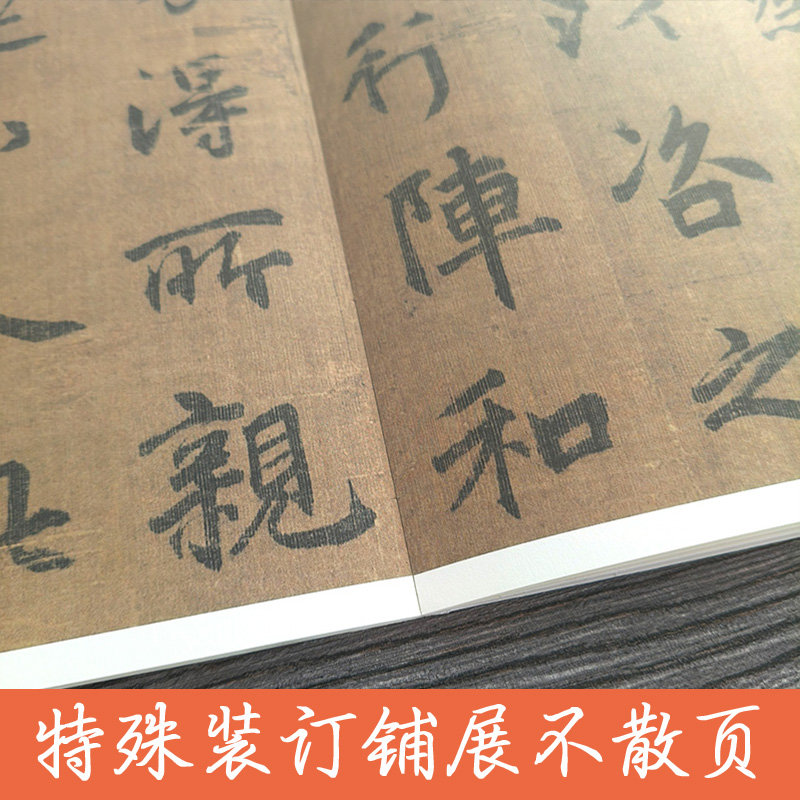 咨之
行陣和
得所親
特殊装订铺展不散页